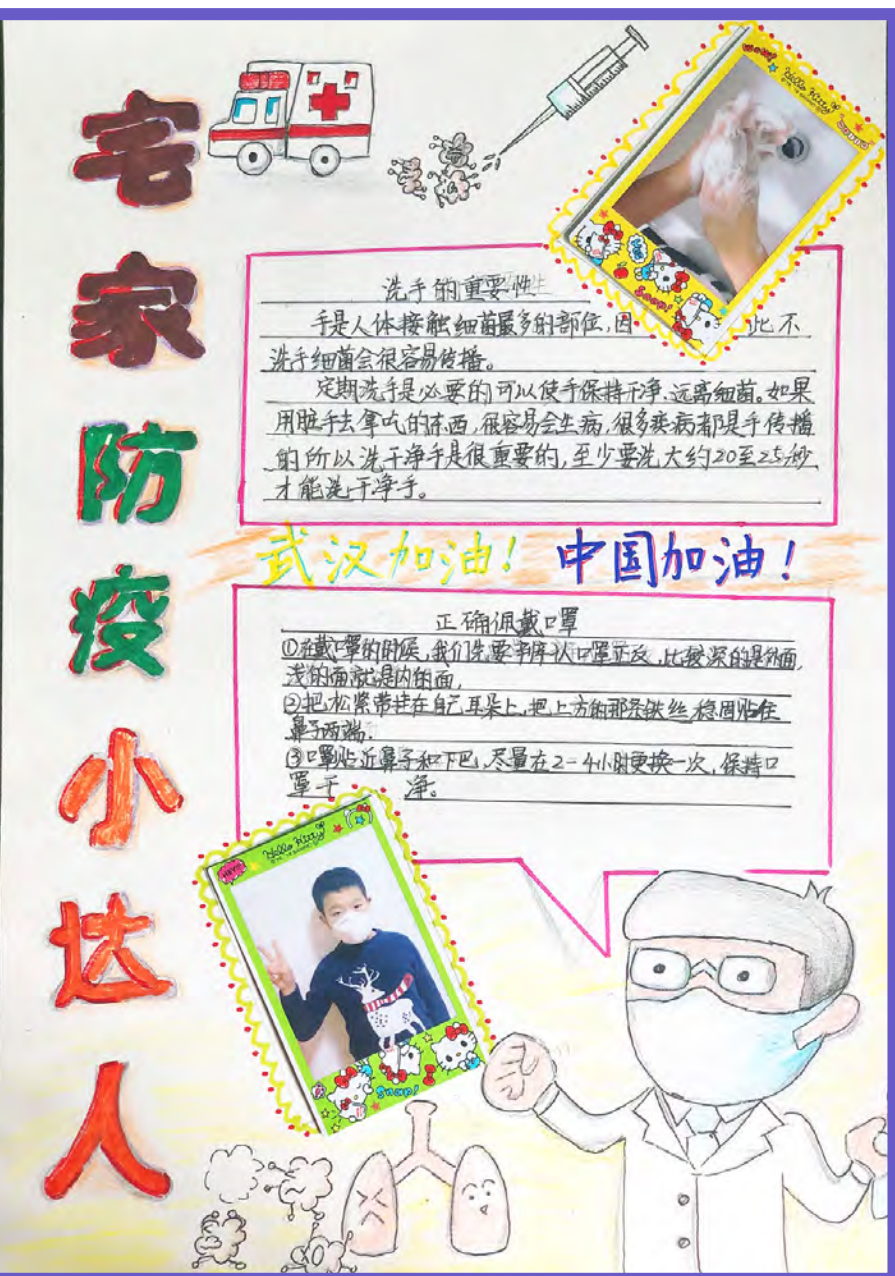 宅家防疫小达人
洗手的重要性
手是人体接触细菌最多的部位,因 此不
洗手细菌会很容易传播。
定期洗手是必要的可以使手保持干净、远离细菌。如果
用脏手去拿吃的东西,很容易会生病,很多疾病都是手传播
的所以洗干净手是很重要的,至少要洗大约20至25秒
才能洗干净手。
武汉加油! 中国加油!
正确佩戴口罩
①在戴口罩的时候,我们先要辨认口罩正反,比较深的是外面,
浅的面就是内的面,
②把松紧带挂在自己耳朵上,把上方的那条铁丝稳固贴住
鼻子两端.
③口罩贴近鼻子和下巴,尽量在2-4小时更换一次,保持口
罩干 净。
Wow!
Hello Kitty
Snap!
Hello Kitty
Snap!